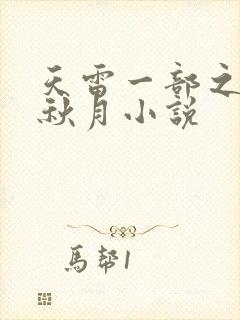 天雷一部之
秋月小説
馬幇1